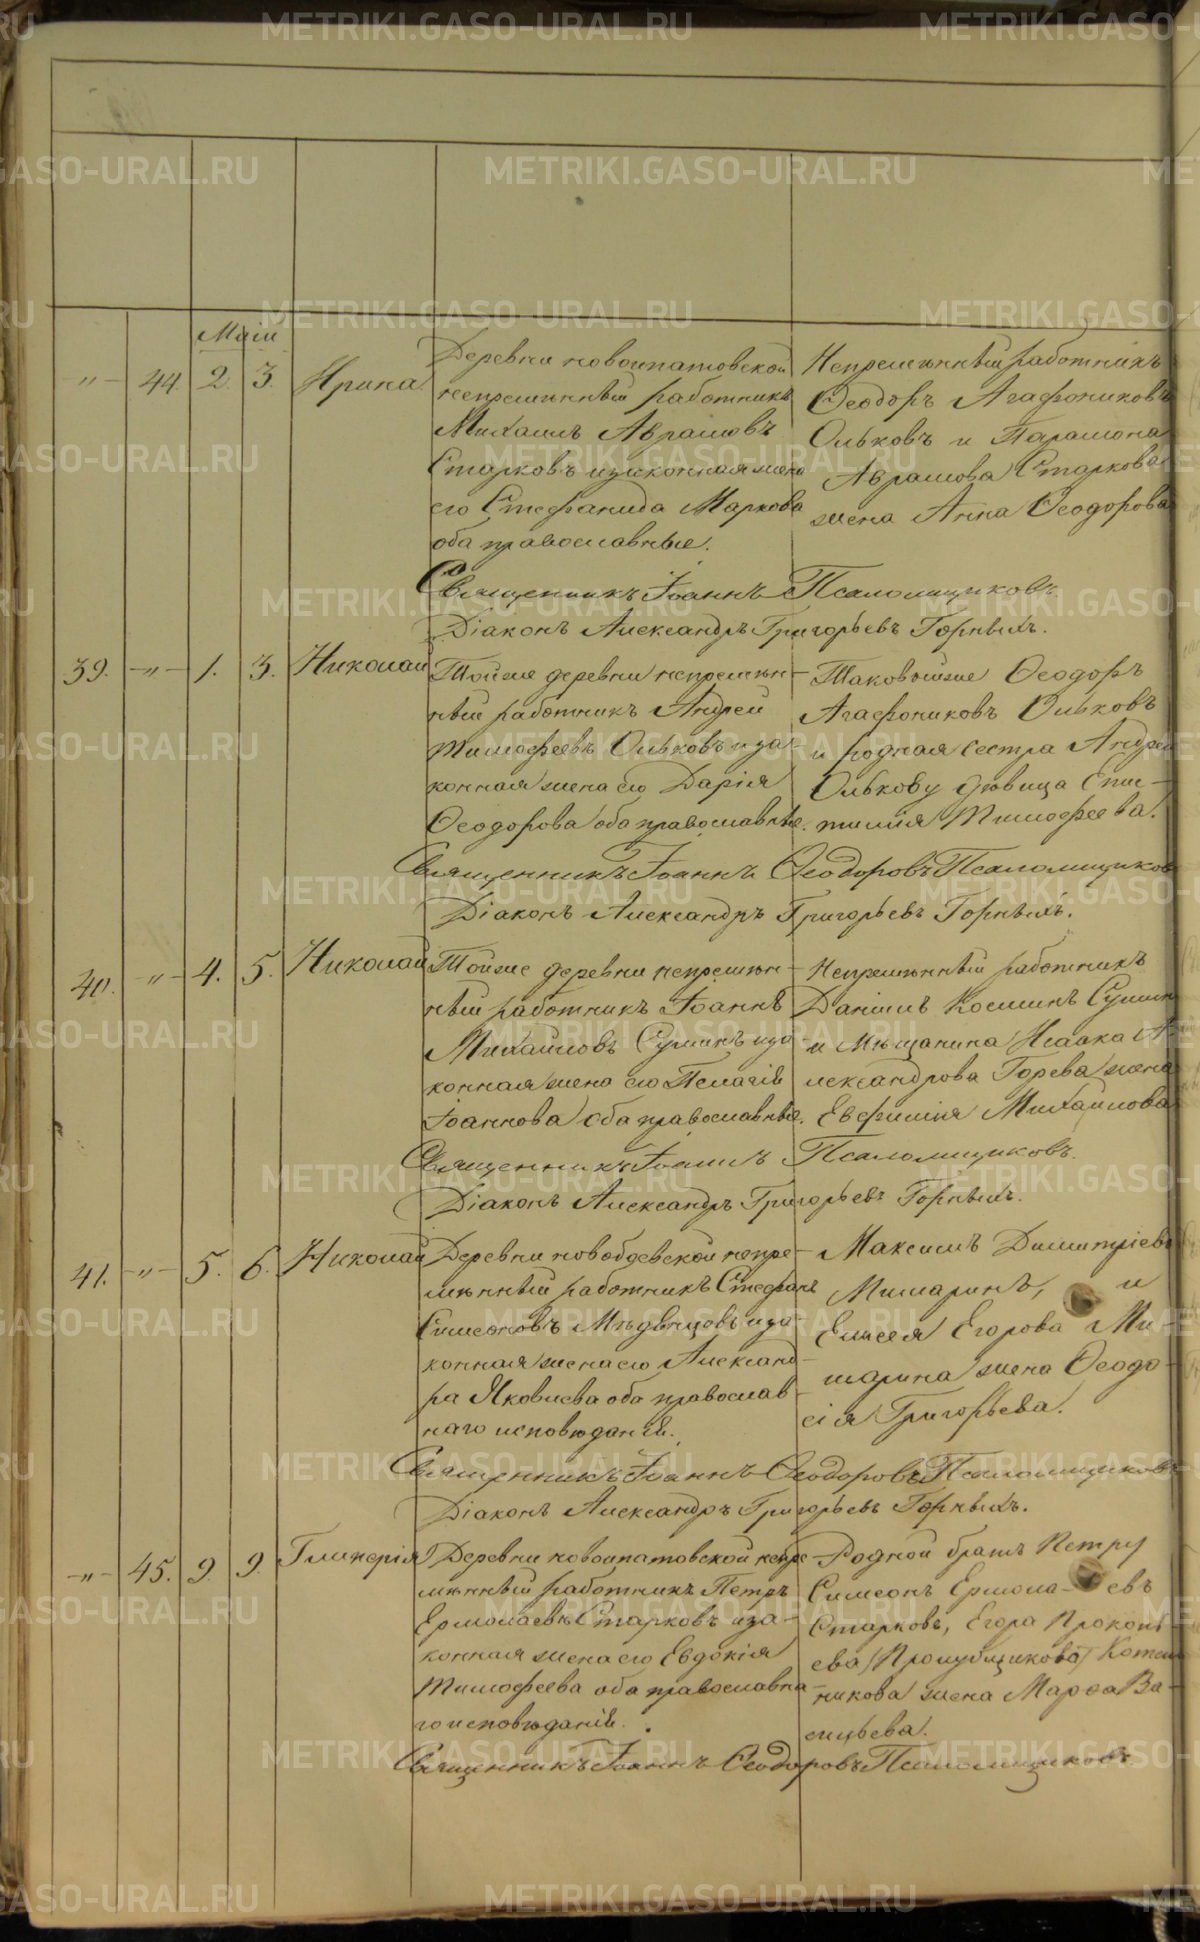 Маiи
"— 44. 2. 3. Ирина
Деревни новоипатовской
непремѣнный работникъ
Михаилъ Аврамовъ
Старковъ и законная жена
его Стефанида Маркова
оба православные.
Непремѣнный работникъ
Ѳеодоръ Агафониковъ
Ольковъ и Парамона
Аврамова Старкова
жена Анна Ѳеодорова
Священникъ Іоаннъ Псаломщиковъ.
Діаконъ Александръ Григорьевъ Горныхъ.
39. —"— 1. 3. Николай
Тойже деревни непремѣн-
ный работникъ Андрей
Тимофеевъ Ольковъ и за-
конная жена его Дарія
Ѳеодорова оба православные.
Таковойже Ѳеодоръ
Агафониковъ Ольковъ
и родная сестра Андрею
Олькову дѣвица Епис-
тимія Тимофеева.
Священникъ Іоаннъ Ѳеодоровъ Псаломщиковъ
Діаконъ Александръ Григорьевъ Горныхъ.
40. —"— 4. 5. Николай
Тойже деревни непремѣн-
ный работникъ Іоаннъ
Михайловъ Сушинъ и за-
конная жена его Пелагія
Іоаннова оба православные.
Непремѣнный работникъ
Даніилъ Косминъ Сушинъ
и Мѣщанина Исаака А-
лександрова Горева жена
Евфимія Михайлова
Священникъ Іоаннъ Псаломщиковъ.
Діаконъ Александръ Григорьевъ Горныхъ.
41. —"— 5. 6. Николай
Деревни новободевской непре-
мѣнный работникъ Стефанъ
Симеоновъ Мѣдвѣцовъ и за-
конная жена его Александ-
ра Яковлева оба православ-
наго исповѣданія.
Максимъ Димитріевъ
Мишаринъ, и
Елисея Егорова Ми-
шарина жена Ѳеодо-
сія Григорьева.
Священникъ Іоаннъ Ѳеодоровъ Псаломщиковъ
Діаконъ Александръ Григорьевъ Горныхъ.
—"— 45. 9. 9. Гликерія
Деревни новоипатовской непре-
мѣнный работникъ Петръ
Ермолаевъ Старковъ и за-
конная жена его Евдокія
Тимофеева оба православна-
го исповѣданія.
Родной братъ Петру
Симеонъ Ермола- евъ
Старковъ, Егора Прокопь-
ева (Пролубщикова) Котель-
никова жена Марѳа Ва-
сильева.
Священникъ Іоаннъ Ѳеодоровъ Псаломщиковъ
METRIKI.GASO-URAL.RU